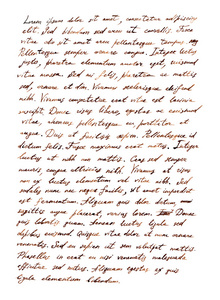 Lorem ipsum dolor sit amet, consectetur adipiscing
elit. Sed bibendum sed arcu ut convallis. Fusce
vitae dui sit amet Pellentesque tempus
Pellentesque semper ornare congue. Integer lectus
justo, pharetra elementum auctor eget, euismod
vitae massa. Sed mi felis, pharetra ac mattis
sed, ornare et dui. Vivamus scelerisque eleifend
nibh. Vivamus consectetur erat vitae est lacinia
suscipit. Donec risus libero, egestas in euismod
vitae, rhoncus pellentesque in
augue. Duis at facilisis sapien. Pellentesque id
dictum felis. Fusce maximus erat mattis. Integer
luctus at nibh non mattis. Cras sed semper
mauris, congue ultricies nibh. Vivamus at risus
non ex luctus elementum vel vitae elit. Sed
sodales nunc nec neque facilisis, sit amet imperdiet
est fermentum. Aliquam quis dolor dictum,
sagittis augue placerat, varius lorem. Donec
quis lobortis ipsum. Aenean luctus ligula sed
dapibus euismod. Quisque vitae dolor et nunc ornare
venenatis. Sed in sapien at sem volutpat mattis.
Phasellus in erat in nisi venenatis malesuada.
Efficitur sed nibh. Aliquam egestas ex quis
ligula elementum bibendum.